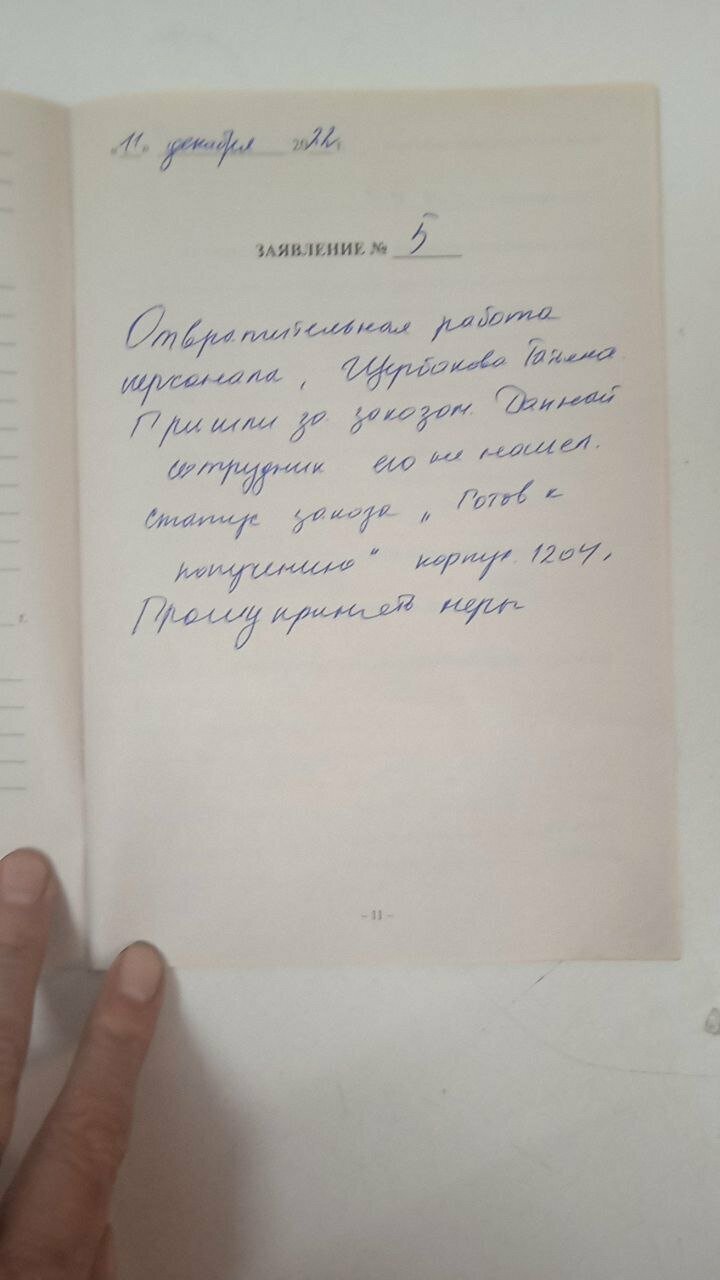 "11" декабря 2022 г.
ЗАЯВЛЕНИЕ № 5
Отвратительная работа
персонала, Щербакова Татьяна.
Пришли за заказом. Данный
сотрудник его не нашел.
Статус заказа „Готов к
получению" корпус 1204,
Прошу принять меры
- 11 -